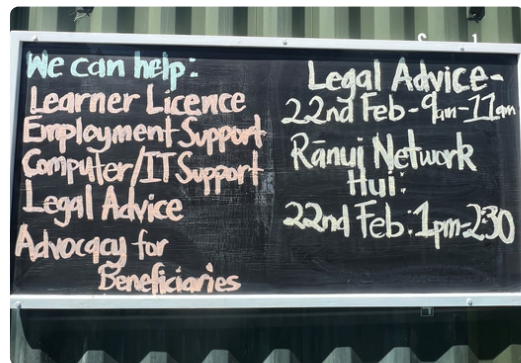 We can help:
Learner Licence
Employment Support
Computer/IT Support
Legal Advice
Advocacy for
Beneficiaries
Legal Advice-
22nd Feb-9am-11am
Rānui Network
Hui:
22nd Feb:1pm-2:30